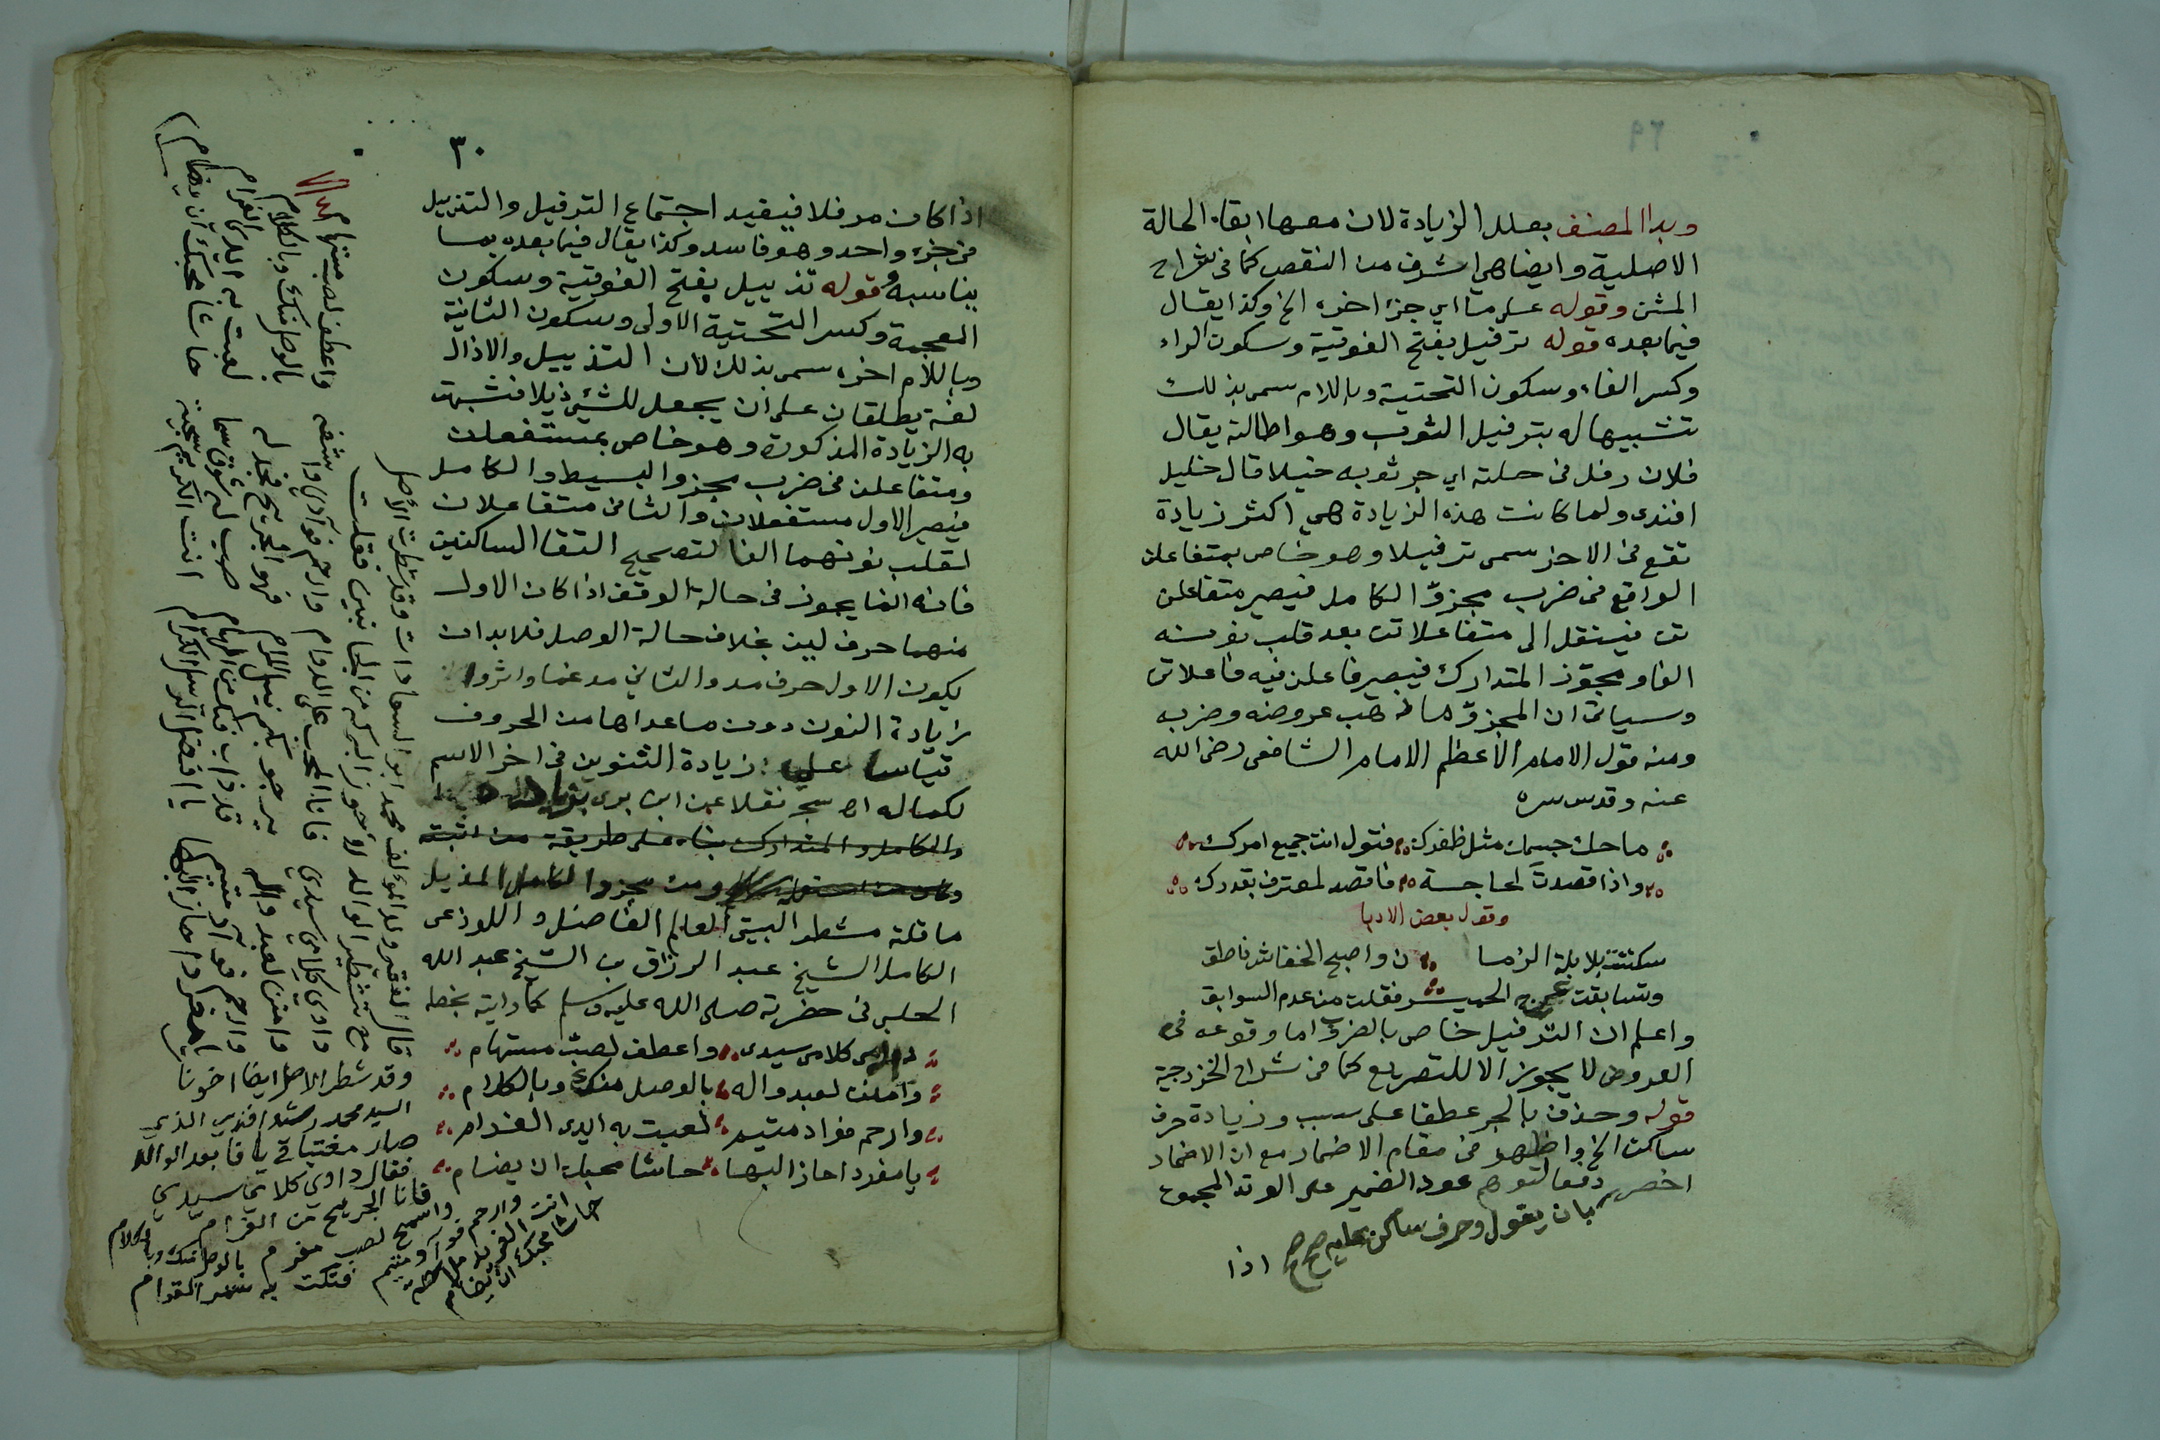 وبدا المصنف بعلل الزيادة لان معها ابقاء الحالة
الاصلية وايضا هي اشرف من النقص كما في شراح
المثنى وقوله على ما اي جزء اخره الخ وكذا يقال
فيما بعده قوله ترفيل بفتح الفوقية وسكون الراء
وكسر الفاء وسكون التحتية وباللام سمي بذلك
تشبيها له بترفيل الثوب وهو اطالته يقال
فلان رفل في حلته اي جر ثوبه خيلا قال خليل
افندي ولما كانت هذه الزيادة هي اكثر زيادة
تقع في الاخر سمي ترفيلا وهو خاص بمتفاعلن
الواقع في ضرب مجزوّ الكامل فيصير متفاعلن
تن فينقل الى متفاعلاتن بعد قلب نونه
الفا ومجزؤ المتدارك فيصير فاعلن فيه فاعلاتن
وسياتي ان المجزوّ ما ذهب عروضه وضربه
ومنه قول الامام الأعظم الامام الشافعي رضي الله
عنه وقدس سره
ما حك جسمك مثل ظفرك فتول انت جميع امرك
واذا قصدت لحاجة فاقصد لمعترف بقدرك
وقول بعض الادبا
سكتت بلابلة الزما ن واصبح الخفاش ناطق
وتسابقت عرج الحمير فقلت من عدم السوابق
واعلم ان الترفيل خاص بالضروب اما وقوعه في
العروض لا يجوز الا للتصريع كما في شراح الخزرجية
قوله وحذف بالجر عطفا على سبب وزيادة حرف
ساكت الخ واظهر في مقام الاضمار مع ان الاضمار
اخصر دفعا لتوهم عود الضمير على الوتد المجموع
بان يقول وحرف ساكن عليه صح صح
اذا
٣٠
اذا كان مرفلا فيفيد اجتماع الترفيل والتذييل
في جزء واحد وهو فاسد وكذا يقال فيما بعده بما
يناسبه وقوله تذييل بفتح الفوقية وسكون
المعجمة وكسر التحتية الاولى وسكون الثانية
وباللام اخره سمي بذلك لان التذييل والاذال
لغة يطلقان على ان يجعل للشئ ذيلا فشبهت
به الزيادة المذكورة وهو خاص بمستفعلن
ومتفاعلن في ضرب مجزو البسيط والكامل
فيصير الاول مستفعلان والثاني متفاعلان
لقلب نونهما الفا لتصحيح التقا الساكنين
فانه انما يجوز في حالة الوقف اذا كان الاول
منهما حرف لين بخلاف حالة الوصل فلا بد ان
يكون الاول حرف مد والثاني مدغما واثروا
زيادة النون دون ما عداها من الحروف
قياسا على زيادة التنوين في اخر الاسم
لكماله اه سج نقلا عن ابن بري
والكامل والمتدارك بناء على طريقة من اثبته
ومن مجزو الكامل المذيل
ما قلته مشطر البيتي العالم الفاضل واللوذعي
الكامل الشيخ عبد الرزاق بن الشيخ عبد الله
الحلبي في حضرته صلى الله عليه وسلم كما رايته بخطه
داوي كلامي سيدي واعطف لصب مستهام
وامنن لعبد واله بالوصل منك وبالكلام
وارحم فواد متيم لعبت به ايدي الغرام
يا مفردا حاز البها حاشا محبك ان يضام
قال الفقير ولد المؤلف محمد ابو السعادات وقد شطرت الأصل
مع تشطير الوالد لأحوز البركة من الجانبين فقلت
داوي كلامي سيدي فانا المحب على الدوام وارحم فوآدي واشفه واعطف لصب مستهام
وامنن لعبد واله يرجو بكم نيل المرام فهو الجريح فجد له بالوصل منك وبالكلام
وارحم فوآد متيم قد ذاب فيك من الهيام صب له شوق سما لعبت به ايدي الغرام
يا مفردا حاز البها يا افضل الرسل الكرام انت الكريم سجية حاشا محبك ان يضام
وقد شطر الاصل ايضا اخونا
السيد محمد رشدو افندي الذي
صار مفتيا في يافا بعد الوالد
فقال داوي كلامي سيدي
فانا الجريح من الغرام
واسمح لصب مغرم بالوصل منك وبالكلام
وارحم فوآد متيم فتكت به سمر القوام
حاشا محبك ان يضام